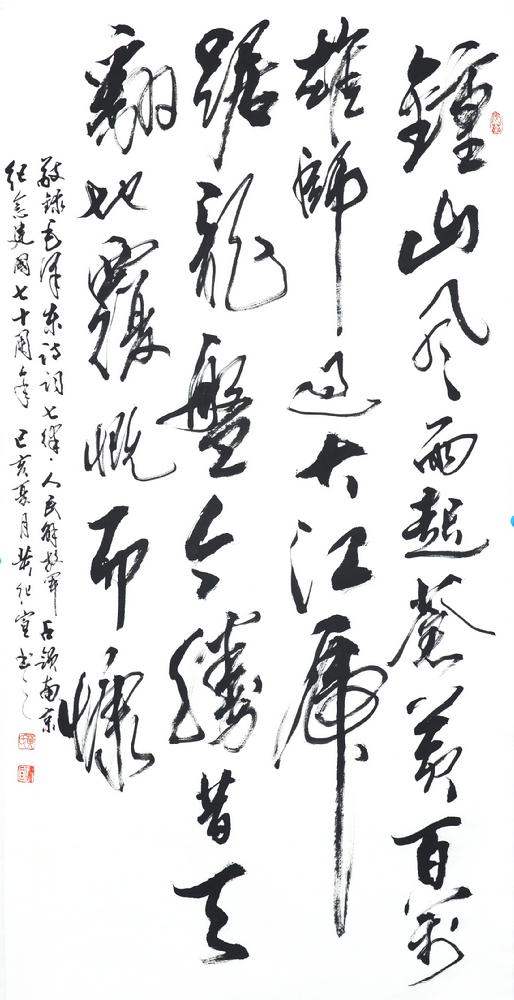 鍾山風雨起蒼黃百萬
雄師過大江虎
踞龍盤今勝昔天
翻地覆慨而慷
敬録毛澤東詩詞七律·人民解放軍占領南京
紀念建國七十周年 己亥夏月黄紀宣书